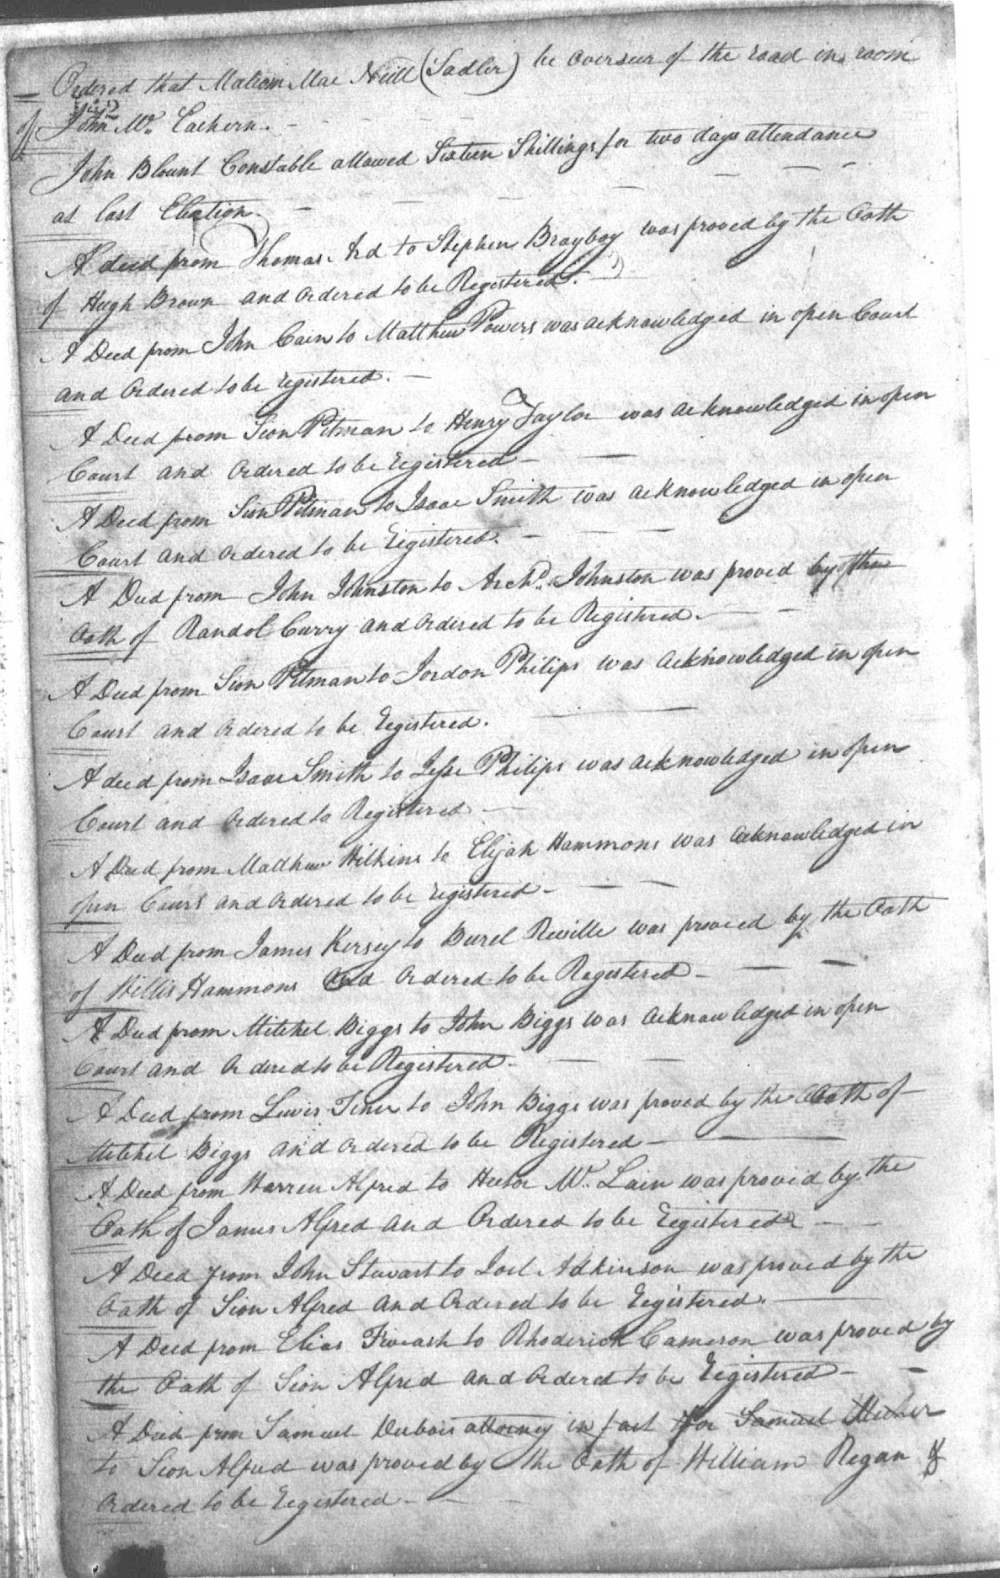 Ordered that Malcom Mac Neill (Sadler) be overseer of the road in room
of John Mc. Eachern.
John Blount Constable allowed Sixteen Shillings for two days attendance
at last Election.
A deed from Thomas Ard to Stephen Brayboy was proved by the Oath
of Hugh Brown and ordered to be Registered.
A Deed from John Cain to Matthew Powers was acknowledged in open Court
and Ordered to be registered.
A Deed from Sion Pitman to Henry Taylor was acknowledged in open
Court and Ordered to be registered
A Deed from Sion Pitman to Isaac Smith was acknowledged in open
Court and ordered to be registered.
A Deed from John Johnston to Archd. Johnston was proved by the
Oath of Randol Curry and Ordered to be Registered.
A Deed from Sion Pitman to Jordon Philips was acknowledged in open
Court and Ordered to be registered.
A deed from Isaac Smith to Jesse Philips was acknowledged in open
Court and Ordered to Registered
A Deed from Matthew Wilkins to Elijah Hammons was acknowledged in
open Court and Ordered to be registered
A Deed from James Kersey to Burel Reville was proved by the Oath
of Willis Hammons and Ordered to be Registered
A Deed from Mitchel Biggs to John Biggs was acknowledged in open
Court and Ordered to be Registered.
A Deed from Lewis Tiner to John Biggs was proved by the Oath of
Mitchel Biggs and ordered to be Registered
A Deed from Warren Alfred to Hector Mc. Lain was proved by the
Oath of James Alfred and Ordered to be registered
A Deed from John Stuvart to Joel Adkinson was proved by the
Oath of Sion Alfred and Ordered to be registered.
A Deed from Elias Fiveash to Rhoderick Cameron was proved by
the Oath of Sion Alfred and Ordered to be registered
A Deed from Samuel Dubois attorney in fact for Samuel
to Sion Alfred was proved by the Oath of William Regan &
Ordered to be registered